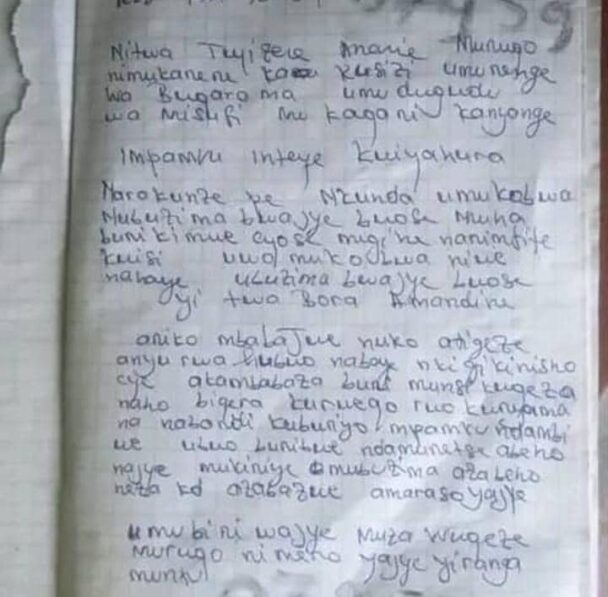 Nitwa Tuyizere Ananie Murugo
nimukanene ka kusizi umurenge
wa Bugarama umudugudu
wa Misufi mu kagari kanyonge
Impamvu inteye Kwiyahura
Narakunze pe Nkunda umukobwa
Mubuzima bwajye bwose Muha
buri kimwe cyose migihe narimfite
kwisi uwo mukobwa niwe
nahaye ubuzima bwajye bwose
yitwa Bora Amandine
ariko mbabajwe nuko atigeze
anyurwa nabaye nkigikinisho
cye akambabaza buri munsi kugeza
naho bigera kurwego rwo kuryama
na nabondi kubuniyo mpamvu Ndambi
we ubwo ndamunetse abeho
najye mukiniye mubuzima azabeho
neza kd azabazwe amaraso yajye
umubiri wajye Muza wugeze
Murugo ni meho yajye yiranga
muntu